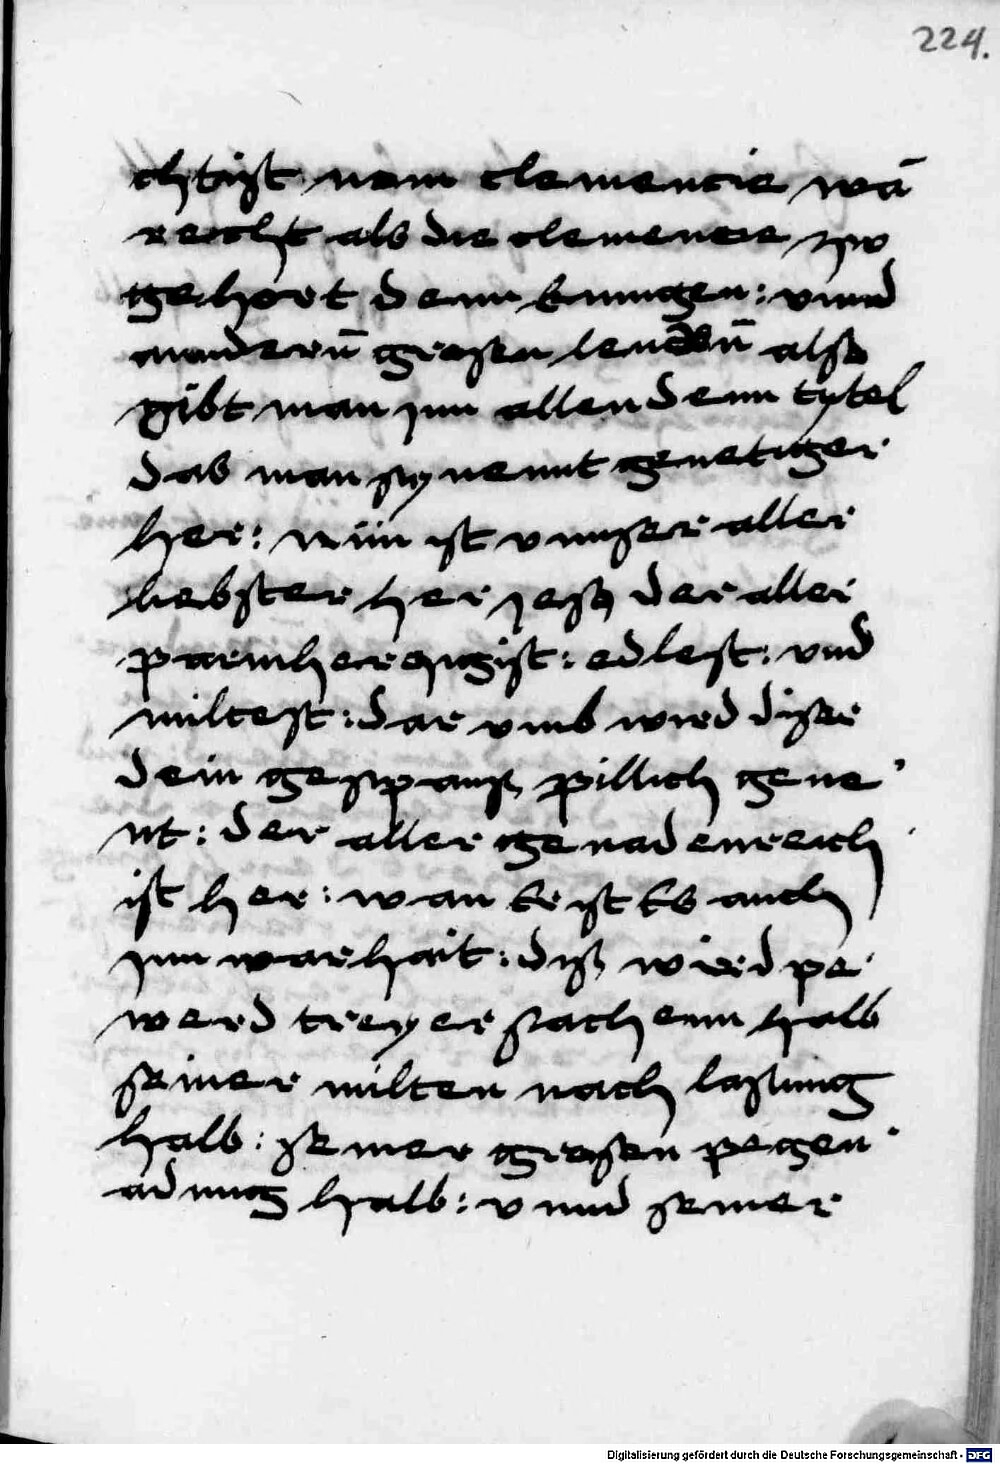 224.
chtist nam clementie wā
reicht als die clemencie zw
gehort denn kunigen : vnnd
annderñ grosen leudeñ also
gibt man jnn allen denn tytel
das man sy nennt genetiger
her : nün ist vnnser aller
liebster her jesus der aller
parmherczigist : edlest : vnd
miltest : dar vmb wird diser
dein gesponß pillich gene
nt : der aller genadenreich
ist her : wan er ist es auch
jnn warhait : diß wird pe
werd treyer sachenn halb
seiner milten nach lasung
halb : seiner grosen pegen
adung halb : vnnd seiner
Digitalisierung gefördert durch die Deutsche Forschungsgemeinschaft - DFG